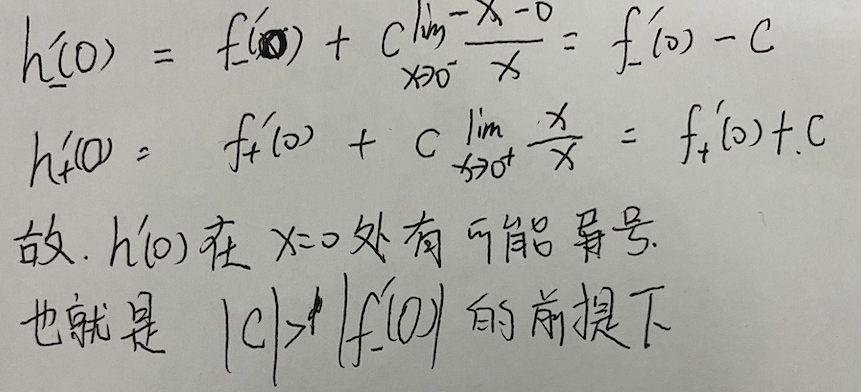 h₋′(0) = f₋′(0) + C lim_{x→0⁻} (-x-0)/x = f₋′(0) - C
h₊′(0) = f₊′(0) + C lim_{x→0⁺} x/x = f₊′(0) + C
故. h′(0) 在 x=0 处有可能异号.
也就是 |C| > |f₋′(0)| 的前提下